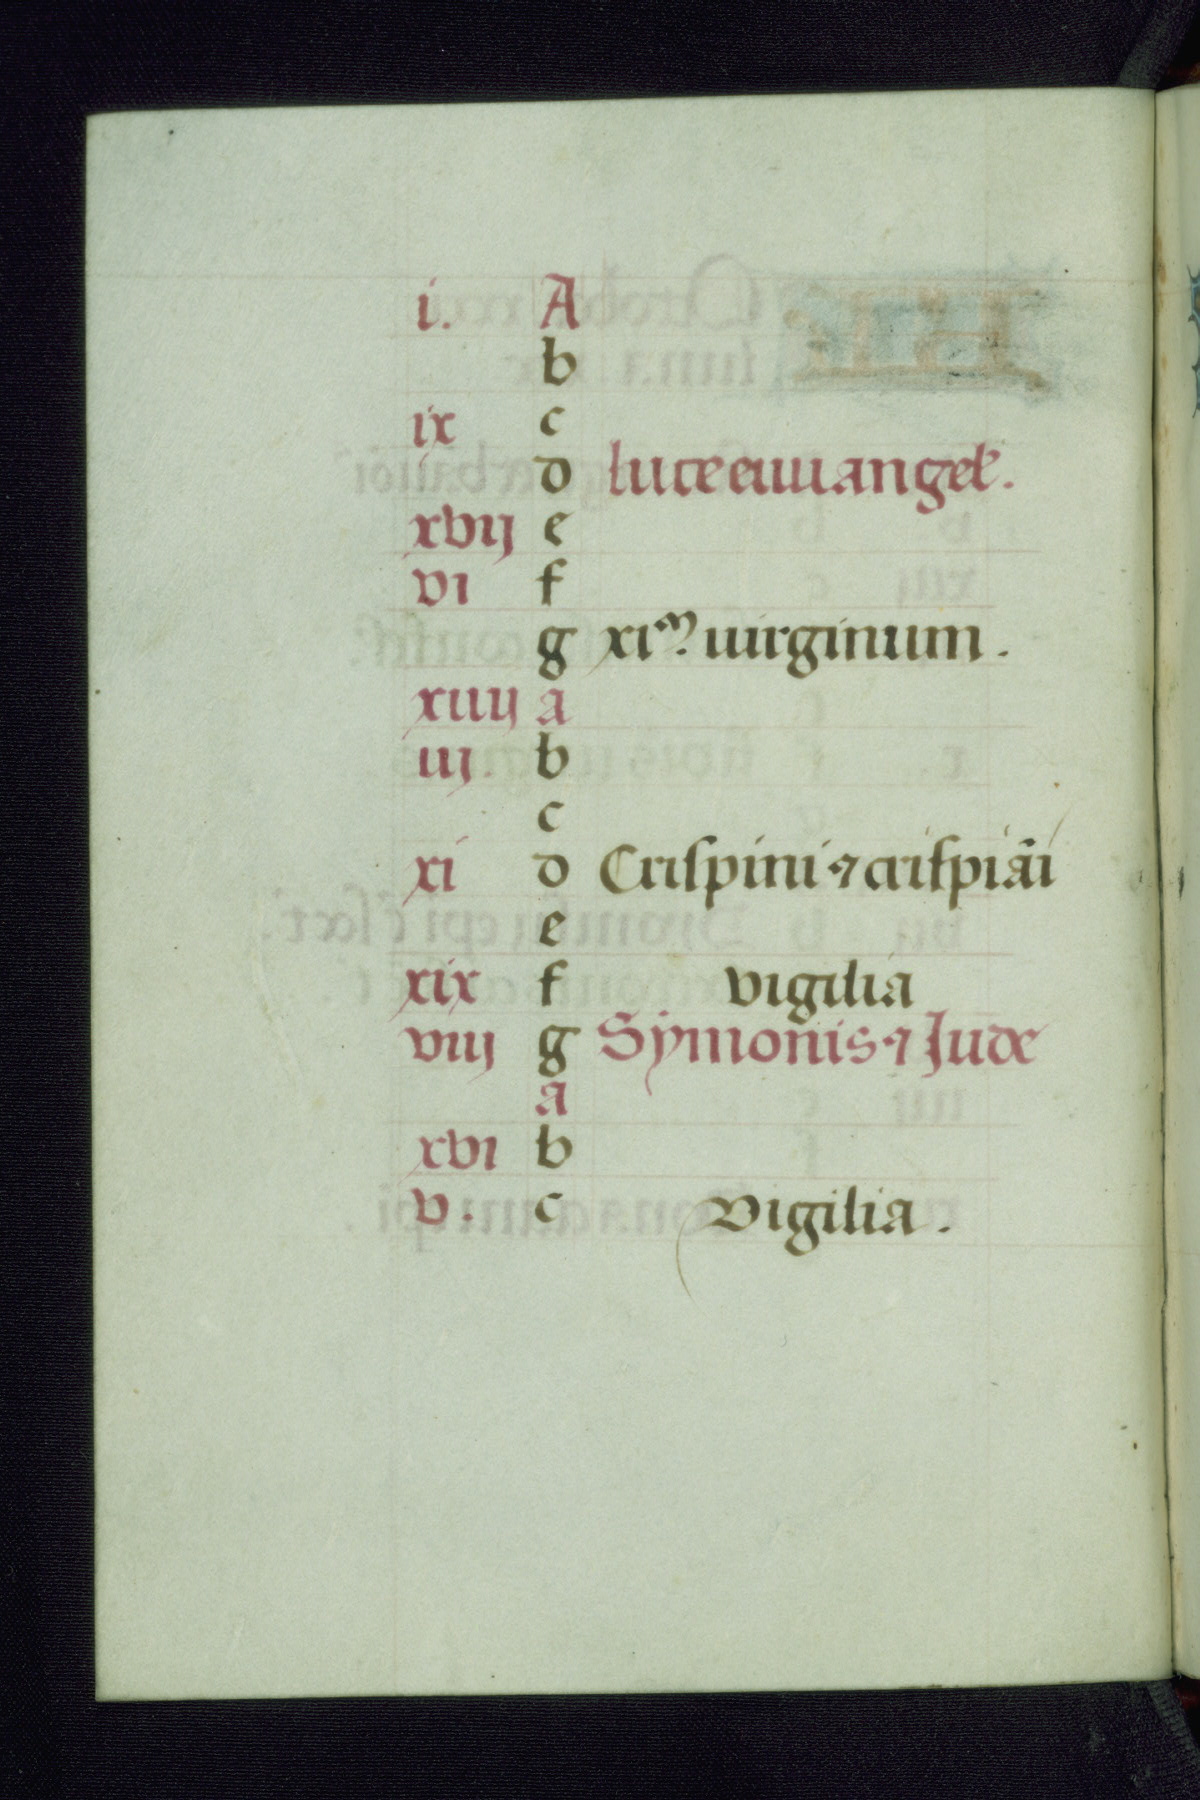 i. A
b
ix c
d luce euuangel.
xvij e
vi f
g xi m. uirginum.
xiiij a
iij. b
c
xi d Crispini ⁊ crispiãi
e
xix f vigilia
viij g Symonis ⁊ Jude
a
xvi b
v. c Vigilia.